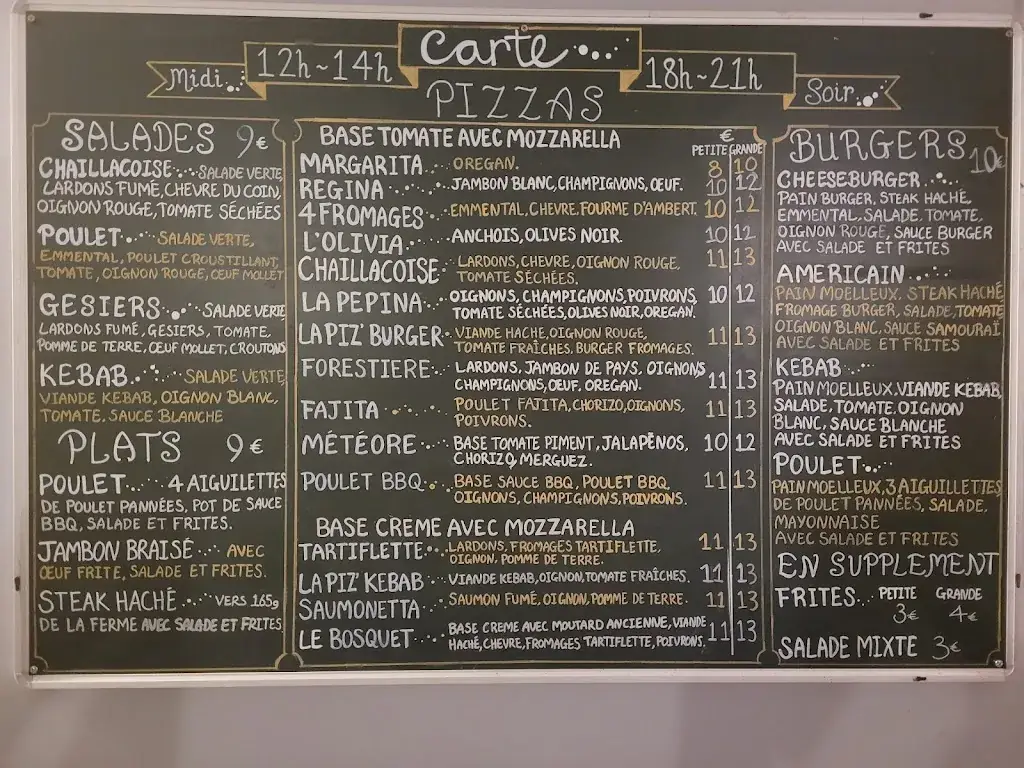 Carte
Midi
12h~14h
18h~21h
Soir
PIZZAS
SALADES 9€
CHAILLACOISE SALADE VERTE,
LARDONS FUMÉ, CHEVRE DU COIN,
OIGNON ROUGE, TOMATE SÉCHÉES
POULET SALADE VERTE,
EMMENTAL, POULET CROUSTILLANT,
TOMATE, OIGNON ROUGE, ŒUF MOLLET
GESIERS SALADE VERTE
LARDONS FUMÉ, GESIERS, TOMATE,
POMME DE TERRE, ŒUF MOLLET, CROUTONS
KEBAB SALADE VERTE,
VIANDE KEBAB, OIGNON BLANC,
TOMATE, SAUCE BLANCHE
PLATS 9€
POULET 4 AIGUILETTES
DE POULET PANNÉES, POT DE SAUCE
BBQ, SALADE ET FRITES.
JAMBON BRAISÉ AVEC
ŒUF FRITE, SALADE ET FRITES.
STEAK HACHÉ VERS 165g
DE LA FERME AVEC SALADE ET FRITES
BASE TOMATE AVEC MOZZARELLA €
PETITE GRANDE
MARGARITA OREGAN. 8 10
REGINA JAMBON BLANC, CHAMPIGNONS, ŒUF. 10 12
4 FROMAGES EMMENTAL, CHEVRE, FOURME D'AMBERT. 10 12
L'OLIVIA ANCHOIS, OLIVES NOIR. 10 12
CHAILLACOISE LARDONS, CHEVRE, OIGNON ROUGE, 11 13
TOMATE SÉCHÉES.
LA PEPINA OIGNONS, CHAMPIGNONS, POIVRONS, 10 12
TOMATE SÉCHÉES, OLIVES NOIR, OREGAN.
LA PIZ' BURGER VIANDE HACHÉ, OIGNON ROUGE, 11 13
TOMATE FRAÎCHES, BURGER FROMAGES.
FORESTIERE LARDONS, JAMBON DE PAYS, OIGNONS
CHAMPIGNONS, ŒUF, OREGAN. 11 13
FAJITA POULET FAJITA, CHORIZO, OIGNONS, 11 13
POIVRONS.
MÉTÉORE BASE TOMATE PIMENT, JALAPEÑOS, 10 12
CHORIZO, MERGUEZ.
POULET BBQ BASE SAUCE BBQ, POULET BBQ 11 13
OIGNONS, CHAMPIGNONS, POIVRONS.
BASE CREME AVEC MOZZARELLA
TARTIFLETTE LARDONS, FROMAGES TARTIFLETTE, 11 13
OIGNON, POMME DE TERRE.
LA PIZ' KEBAB VIANDE KEBAB, OIGNON, TOMATE FRAÎCHES. 11 13
SAUMONETTA SAUMON FUMÉ, OIGNON, POMME DE TERRE. 11 13
LE BOSQUET BASE CREME AVEC MOUTARD ANCIENNE, VIANDE 11 13
HACHÉ, CHEVRE, FROMAGES TARTIFLETTE, POIVRONS.
BURGERS 10€
CHEESEBURGER
PAIN BURGER, STEAK HACHÉ,
EMMENTAL, SALADE, TOMATE,
OIGNON ROUGE, SAUCE BURGER
AVEC SALADE ET FRITES
AMERICAIN
PAIN MOELLEUX, STEAK HACHÉ
FROMAGE BURGER, SALADE, TOMATE
OIGNON BLANC, SAUCE SAMOURAÏ
AVEC SALADE ET FRITES
KEBAB
PAIN MOELLEUX, VIANDE KEBAB,
SALADE, TOMATE, OIGNON
BLANC, SAUCE BLANCHE
AVEC SALADE ET FRITES
POULET
PAIN MOELLEUX, 3 AIGUILLETTES
DE POULET PANNÉES, SALADE,
MAYONNAISE
AVEC SALADE ET FRITES
EN SUPPLEMENT
FRITES PETITE GRANDE
3€ 4€
SALADE MIXTE 3€